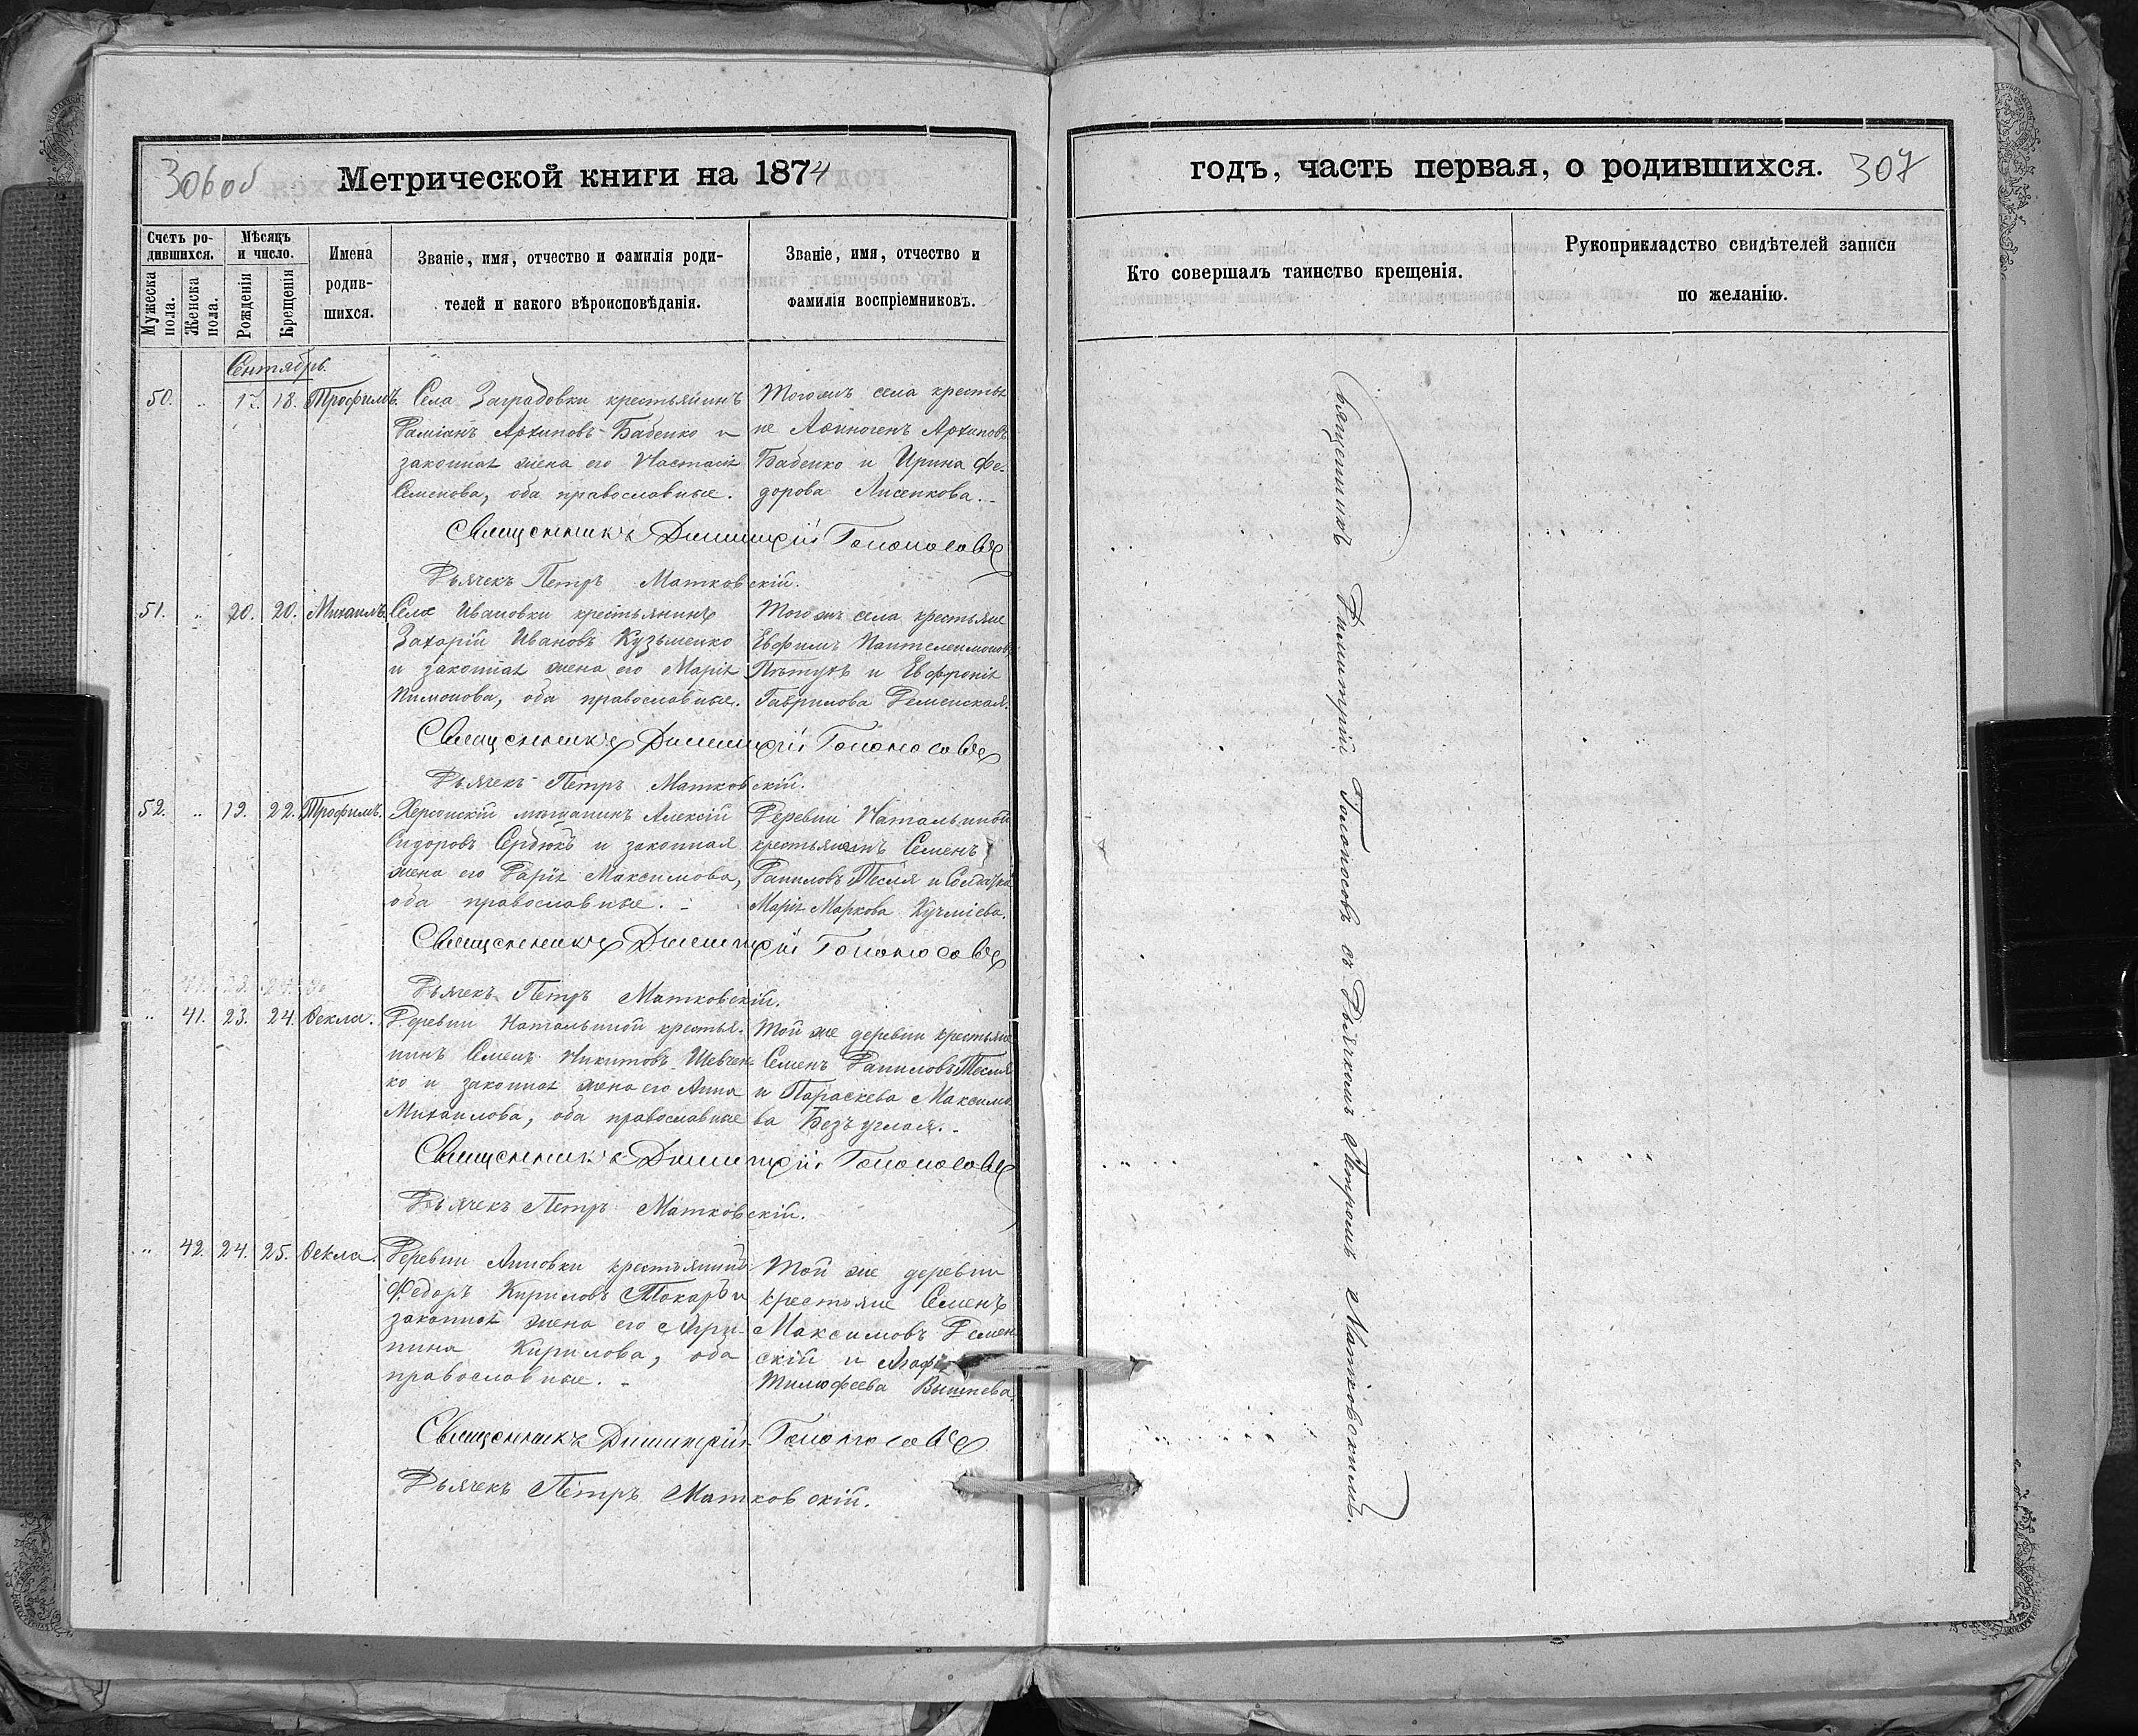 306 об
Метрической книги на 1874
Счетъ ро-
дившихся.
Мѣсяцъ
и число.
Мужеска
пола.
Женска
пола.
Рожденія
Крещенія
Имена
родив-
шихся.
Званіе, имя, отчество и фамилія роди-
телей и какого вѣроисповѣданія.
Званіе, имя, отчество и
фамилія воспріемниковъ.
Сентябрь.
50. „ 17. 18. Трофимъ.
Села Заградовки крестьянинъ
Даміанъ Архиповъ Бабенко и
законная жена его Настасія
Семенова, оба православные.
Тогожъ села крестья
не Аѳиногенъ Архиповъ
Бабенко и Ирина Фе-
дорова Лисенкова.
Священникъ Димитрій Голоносовъ
Дьячекъ Петръ Матковскій.
51. „ 20. 20. Михаилъ.
Села Ивановки крестьянинъ
Захарій Ивановъ Кузьменко
и законная жена его Марія
Пимонова, оба православные.
Тогожъ села крестьяне
Евфимъ Пантелеимоновъ
Пѣтухъ и Евфросія
Гаврилова Деменская.
Священникъ Димитрій Голоносовъ
Дьячекъ Петръ Матковскій.
52. „ 19. 22. Трофимъ.
Херсонскій мѣщанинъ Алексій
Сидоровъ Сердюкъ и законная
жена его Дарія Максимова,
оба православные.
Деревни Натальиной
крестьянинъ Семенъ
Даниловъ Тесля и Солдатка
Марія Маркова Кучміева.
Священникъ Димитрій Голоносовъ
Дьячекъ Петръ Матковскій.
„ 41. 23. 24. Ѳекла.
Деревни Натальиной крестья-
нинъ Семенъ Никитовъ Шевчен-
ко и законная жена его Анна
Михаилова, оба православные
Той же деревни крестьяне
Семенъ Даниловъ Тесля
и Параскева Максимо-
ва Безъуглая.
Священникъ Димитрій Голоносовъ
Дьячекъ Петръ Матковскій.
„ 42. 24. 25. Ѳекла.
Деревни крестьянинъ
Федоръ Кириловъ Токарь и
законная жена его Агри-
пина Кирилова, оба
православные.
Той же деревни
крестьяне Семенъ
Максимовъ Демен
скій и
Тимофеева
Священникъ Димитрій Голоносовъ
Дьячекъ Петръ Матковскій.
годъ, часть первая, о родившихся.
307
Кто совершалъ таинство крещенія.
Рукоприкладство свидѣтелей записи
по желанію.
Священникъ Димитрій Голоносовъ съ Дьячкомъ Петромъ Матковскимъ.